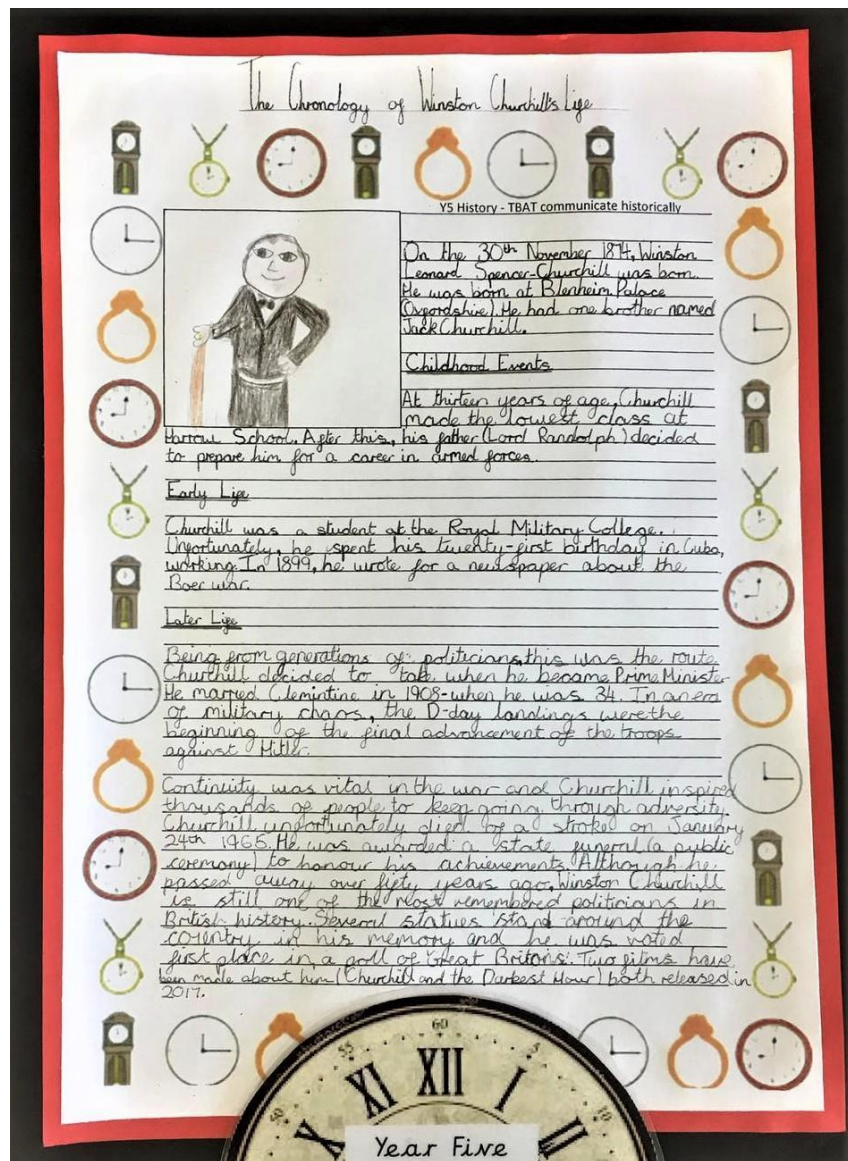 The Chronology of Winston Churchill's Life
Y5 History - TBAT communicate historically
On the 30th November 1874, Winston
Leonard Spencer-Churchill was born.
He was born at Blenheim Palace
(Oxfordshire). He had one brother named
Jack Churchill.
Childhood Events
At thirteen years of age, Churchill
made the lowest class at
Harrow School. After this, his father (Lord Randolph) decided
to prepare him for a career in armed forces.
Early Life
Churchill was a student at the Royal Military College.
Unfortunately, he spent his twenty-first birthday in Cuba,
working. In 1899, he wrote for a newspaper about the
Boer war.
Later Life
Being from generations of politicians, this was the route
Churchill decided to take when he became Prime Minister
He married Clemintine in 1908-when he was 34. In an era
of military chaos, the D-day landings were the
beginning of the final advancement of the troops
against Hitler.
Continuity was vital in the war and Churchill inspired
thousands of people to keep going through adversity.
Churchill unfortunately died of a stroke on January
24th 1965. He was awarded a state funeral (a public
ceremony) to honour his achievements. Although he
passed away over fifty years ago, Winston Churchill
is still one of the most remembered politicians in
British history. Several statues stand around the
country in his memory and he was voted
first place in a poll of 'Great Britons'. Two films have
been made about him (Churchill and the Darkest Hour) both released in
2017.
55 60 5
40 10
X XI XII I II
Year Five